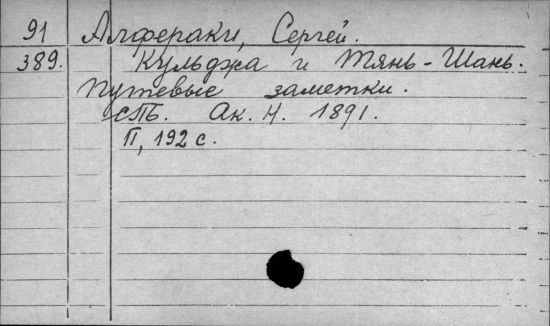 91 Алфераки, Сергей.
389. Кульджа и Тянь-Шань.
Путевые заметки.
СПб. Ак. Н. 1891.
II, 192 с.